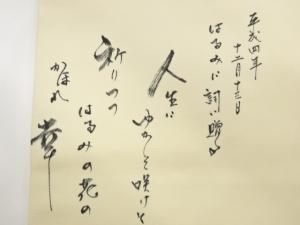 平成四年
十二月十三日
はるみに詞い贈る
人生に
ゆかしく咲けと
祈りつつ
はるみの花の
かほれ